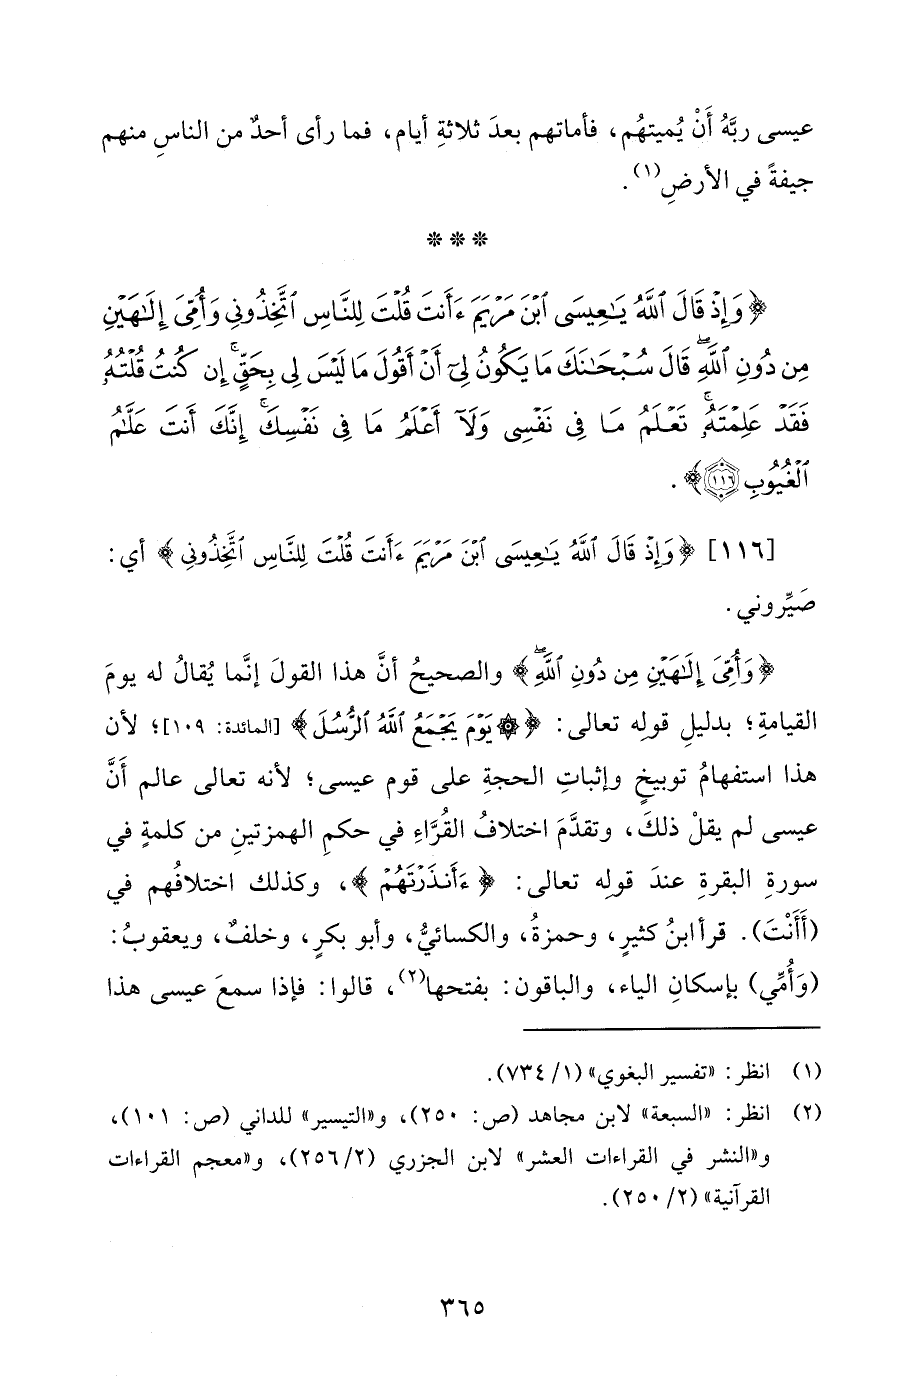 عيسى ربَّهُ أَنْ يُميتهُم، فأماتهم بعدَ ثلاثةِ أيام، فما رأى أحدٌ من الناسِ منهم
جيفةً في الأرضِ(١).
***
﴿وَإِذْ قَالَ ٱللَّهُ يَـٰعِيسَى ٱبْنَ مَرْيَمَ ءَأَنتَ قُلْتَ لِلنَّاسِ ٱتَّخِذُونِى وَأُمِّىَ إِلَـٰهَيْنِ
مِن دُونِ ٱللَّهِۖ قَالَ سُبْحَـٰنَكَ مَا يَكُونُ لِىٓ أَنْ أَقُولَ مَا لَيْسَ لِى بِحَقٍّۚ إِن كُنتُ قُلْتُهُۥ
فَقَدْ عَلِمْتَهُۥۚ تَعْلَمُ مَا فِى نَفْسِى وَلَآ أَعْلَمُ مَا فِى نَفْسِكَۚ إِنَّكَ أَنتَ عَلَّـٰمُ
ٱلْغُيُوبِ ١١٦﴾.
[١١٦] ﴿وَإِذْ قَالَ ٱللَّهُ يَـٰعِيسَى ٱبْنَ مَرْيَمَ ءَأَنتَ قُلْتَ لِلنَّاسِ ٱتَّخِذُونِى﴾ أي:
صَيِّروني.
﴿وَأُمِّىَ إِلَـٰهَيْنِ مِن دُونِ ٱللَّهِۖ﴾ والصحيحُ أنَّ هذا القولَ إنَّما يُقالُ له يومَ
القيامةِ؛ بدليلِ قولِه تعالى: ﴿۞ يَوْمَ يَجْمَعُ ٱللَّهُ ٱلرُّسُلَ﴾ [المائدة: ١٠٩]؛ لأن
هذا استفهامُ توبيخٍ وإثباتِ الحجةِ على قوم عيسى؛ لأنه تعالى عالم أَنَّ
عيسى لم يقلْ ذلكَ، وتقدَّمَ اختلافُ القُرَّاءِ في حكمِ الهمزتينِ من كلمةٍ في
سورةِ البقرةِ عندَ قولِه تعالى: ﴿ءَأَنذَرْتَهُمْ﴾، وكذلك اختلافُهم في
(أَأَنْتَ). قرأ ابنُ كثيرٍ، وحمزةُ، والكسائيُّ، وأبو بكرٍ، وخلفٌ، ويعقوبُ:
(وَأُمِّي) بإسكانِ الياء، والباقون: بفتحها(٢)، قالوا: فإذا سمعَ عيسى هذا
(١) انظر: «تفسير البغوي» (١/ ٧٣٤).
(٢) انظر: «السبعة» لابن مجاهد (ص: ٢٥٠)، و«التيسير» للداني (ص: ١٠١)،
و«النشر في القراءات العشر» لابن الجزري (٢/ ٢٥٦)، و«معجم القراءات
القرآنية» (٢/ ٢٥٠).
٣٦٥